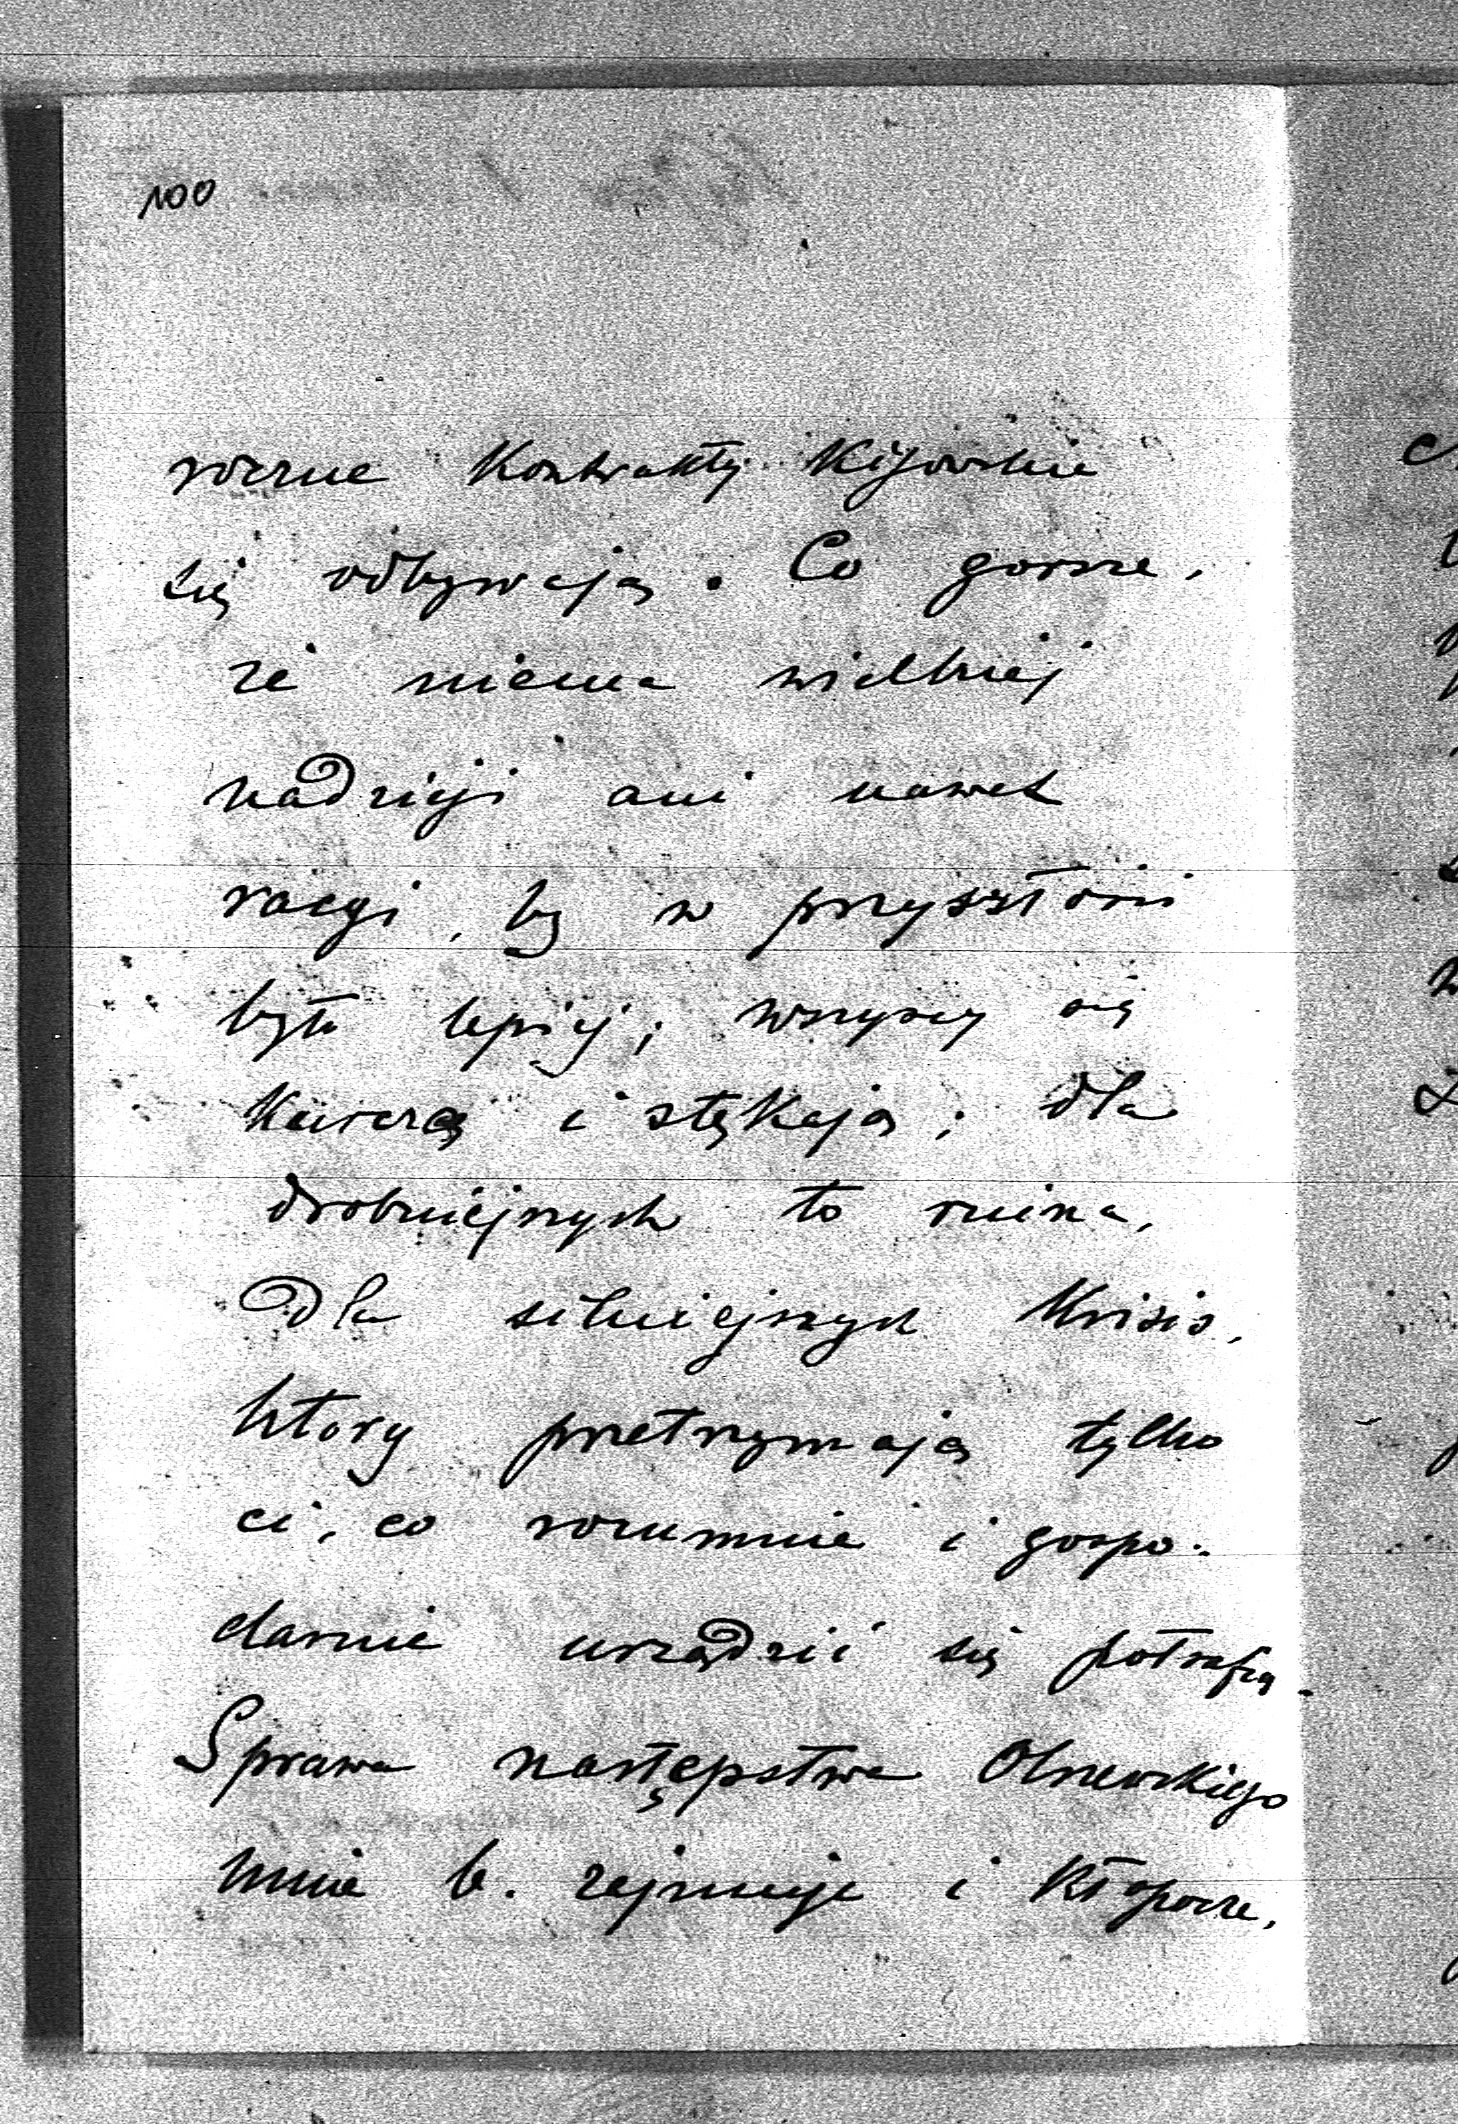 100
roczne Kontrakty Kijowskie
się odbywają. Co gorsze,
że niema wielkiej
nadzieji ani nawet
racyi, by w przyszłości
było lepiej; wszyscy się
kurczą i stękają; dla
drobniejszych to ruina,
dla silniejszych Krisis,
który przetrzymają tylko
ci, co rozumnie i gospo-
darnie urządzić się potrafią.
Sprawa następstwa Olszewskiego
mnie b. zajmuje i kłopocze,